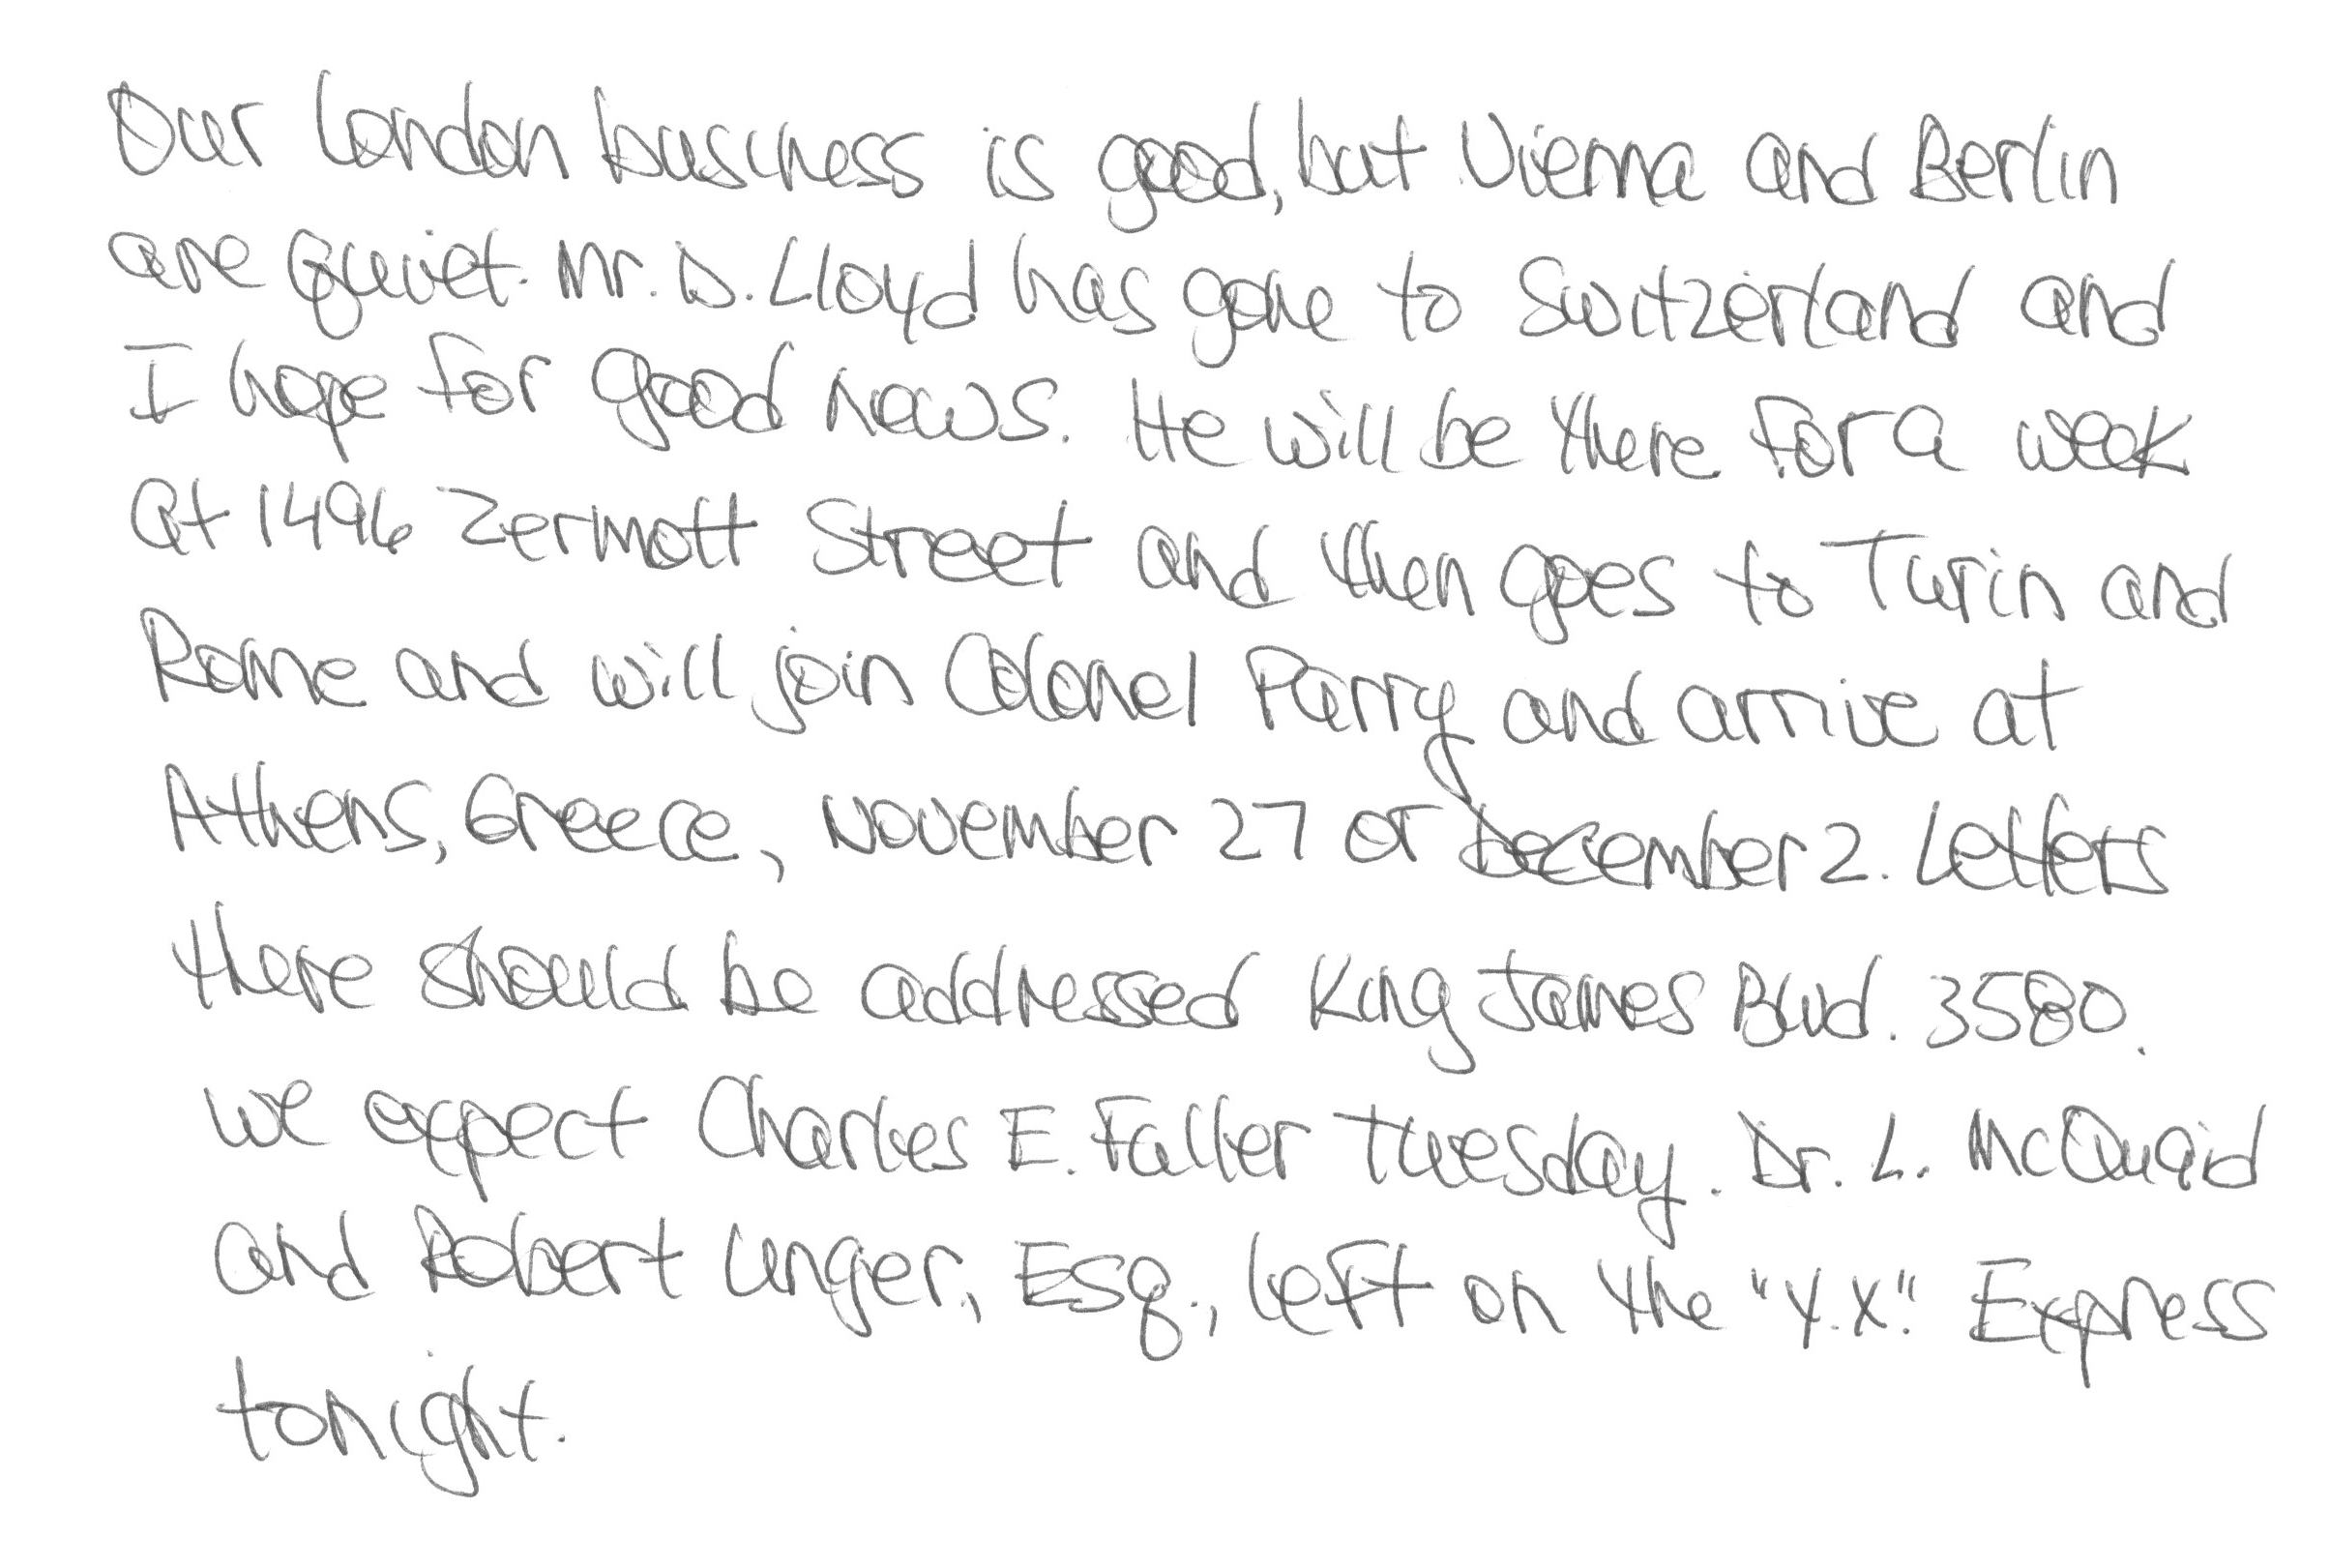 Our London business is good, but Vienna and Berlin
are quiet. Mr. D. Lloyd has gone to Switzerland and
I hope for good news. He will be there for a week
at 1496 Zermott Street and then goes to Turin and
Rome and will join Colonel Parry and arrive at
Athens, Greece, November 27 or December 2. Letters
there should be addressed King James Blvd. 3580.
We expect Charles E. Fuller Tuesday. Dr. L. McQuaid
and Robert Unger, Esq., left on the "Y.X." Express
tonight.